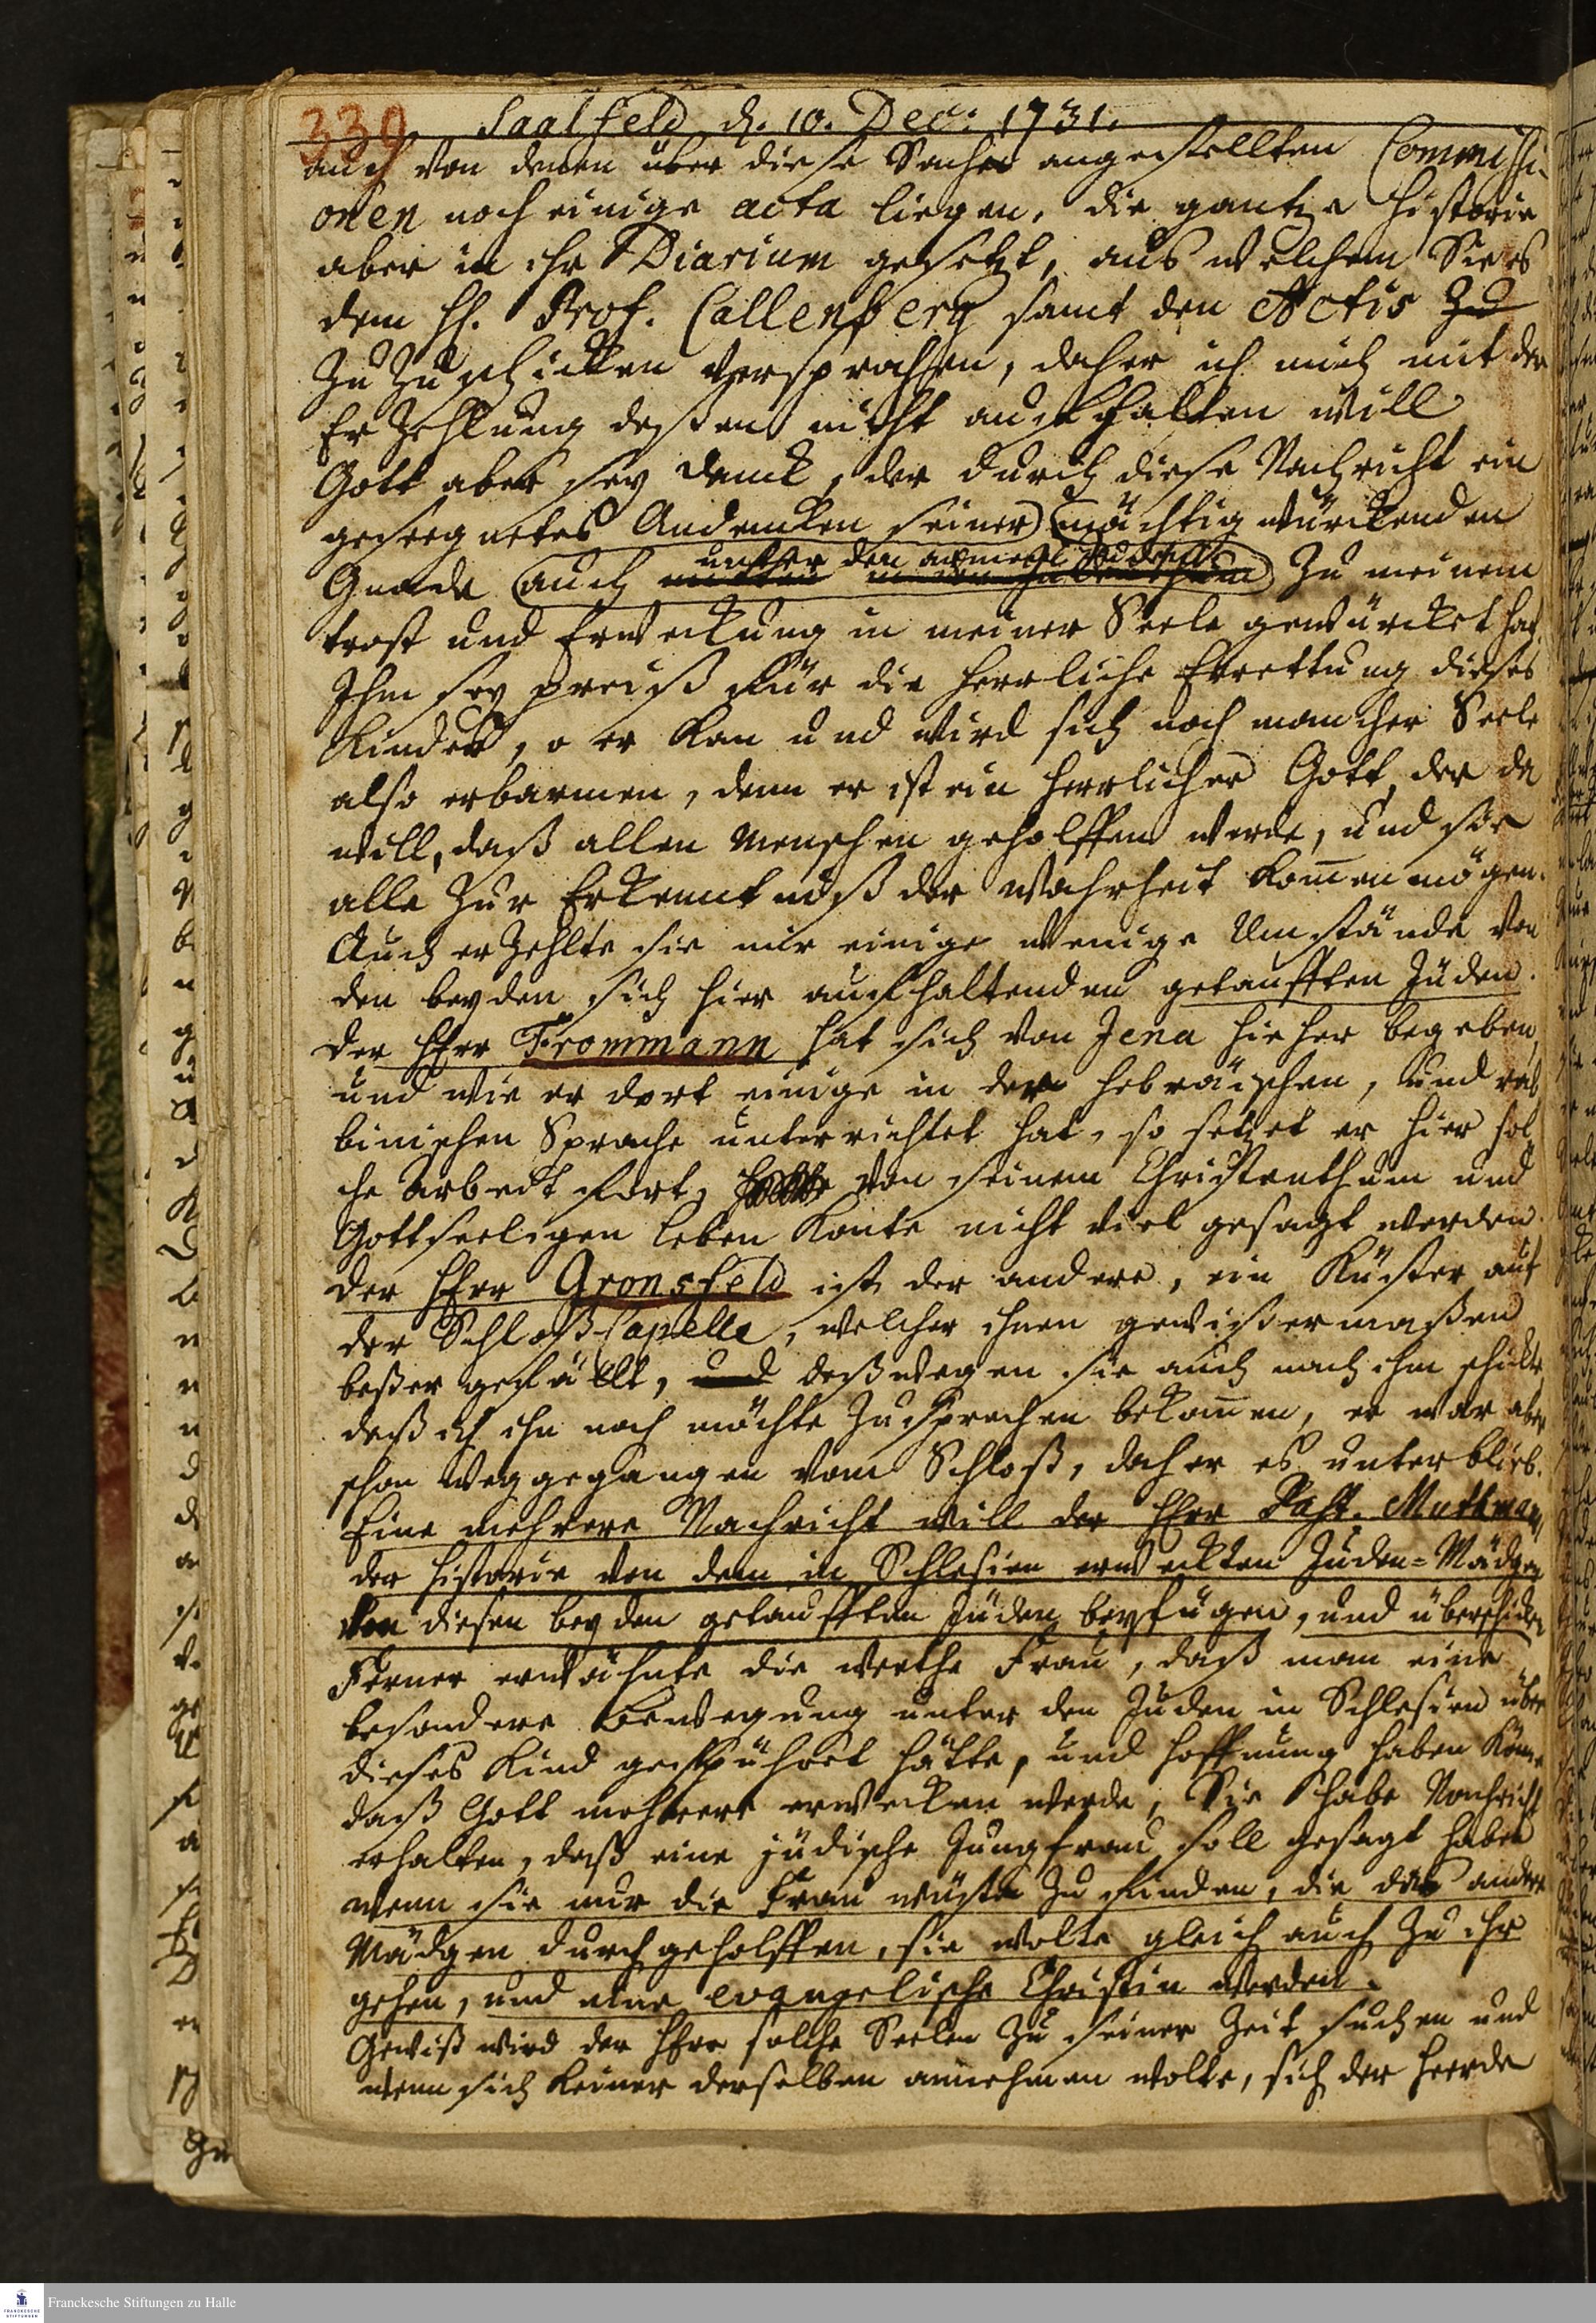 339
Saalfeld d. 10. Dec: 1731.
auch von denen über diese Sache angestellten Commissi-
onen noch einige acta liegen, die gantze Historie
aber in ihr Diarium gesetzt, aus welchem Sie es
dem H. Prof. Callenberg samt den Actis zu
zuzuschicken versprachen, daher ich mich mit der
Erzehlung deßen nicht aufhalten will
Gott aber sey danck, der durch diese Nachricht ein
geseegnetes Andencken seiner mächtig würckenden
unter den
Gnade auch zu meinem
trost und Erweckung in meiner Seele gewürcket hat.
Ihm sey preiß für die herrliche Errettung dieses
Kindes, o er kan und wird sich noch mancher Seele
also erbarmen, denn er ist ein herrlicher Gott, der da
will, daß allen Menschen geholffen werde, und sie
alle zur Erkenntniß der Wahrheit kom̄en mögen.
Auch erzehlte sie mir einige wenige Umstände von
den beyden sich hier aufhaltenden getaufften Juden.
Der Herr Frommann hat sich von Jena hieher begeben,
und wie er dort einige in der hebräischen, und rab
binischen Sprache unterrichtet hat, so setzet er hier sol
che Arbeit fort, von seinem Christenthum und
Gottseeligen leben konte nicht viel gesagt werden.
Der Herr Gronsfeld ist der andere, ein Küster auf
der Schloß-Capelle, welcher ihnen gewißermaßen
beßer gefällt, und deßwegen sie auch nach ihm schickte,
daß ich ihn noch möchte zu sprechen bekom̄en, er war aber
schon weggegangen vom Schloß, daher es unterblieb.
Eine mehrere Nachricht will der Herr Past. Muthmann
der Historie von dem in Schlesien erweckten Juden-Mädgen
von diesen beyden getaufften Juden beyfügen, und überschicken
Ferner erwähnte die werthe Frau, daß man eine
besondere Bewegung unter den Juden in Schlesien über
dieses Kind gespühret hätte, und Hoffnung haben könne
daß Gott mehrere erwecken werde, Sie habe Nachricht
erhalten, daß eine jüdische Jungfrau soll gesagt haben
wenn sie nur die Frau wüste zu finden, die das andere
Mädgen durchgeholffen, sie wolte gleich auch zu ihr
gehen, und eine evangelische Christin werden.
Gewiß wird der Herr solche Seelen zu seiner Zeit suchen und
wenn sich keiner derselben annehmen wolte, sich der Heerde
Franckesche Stiftungen zu Halle